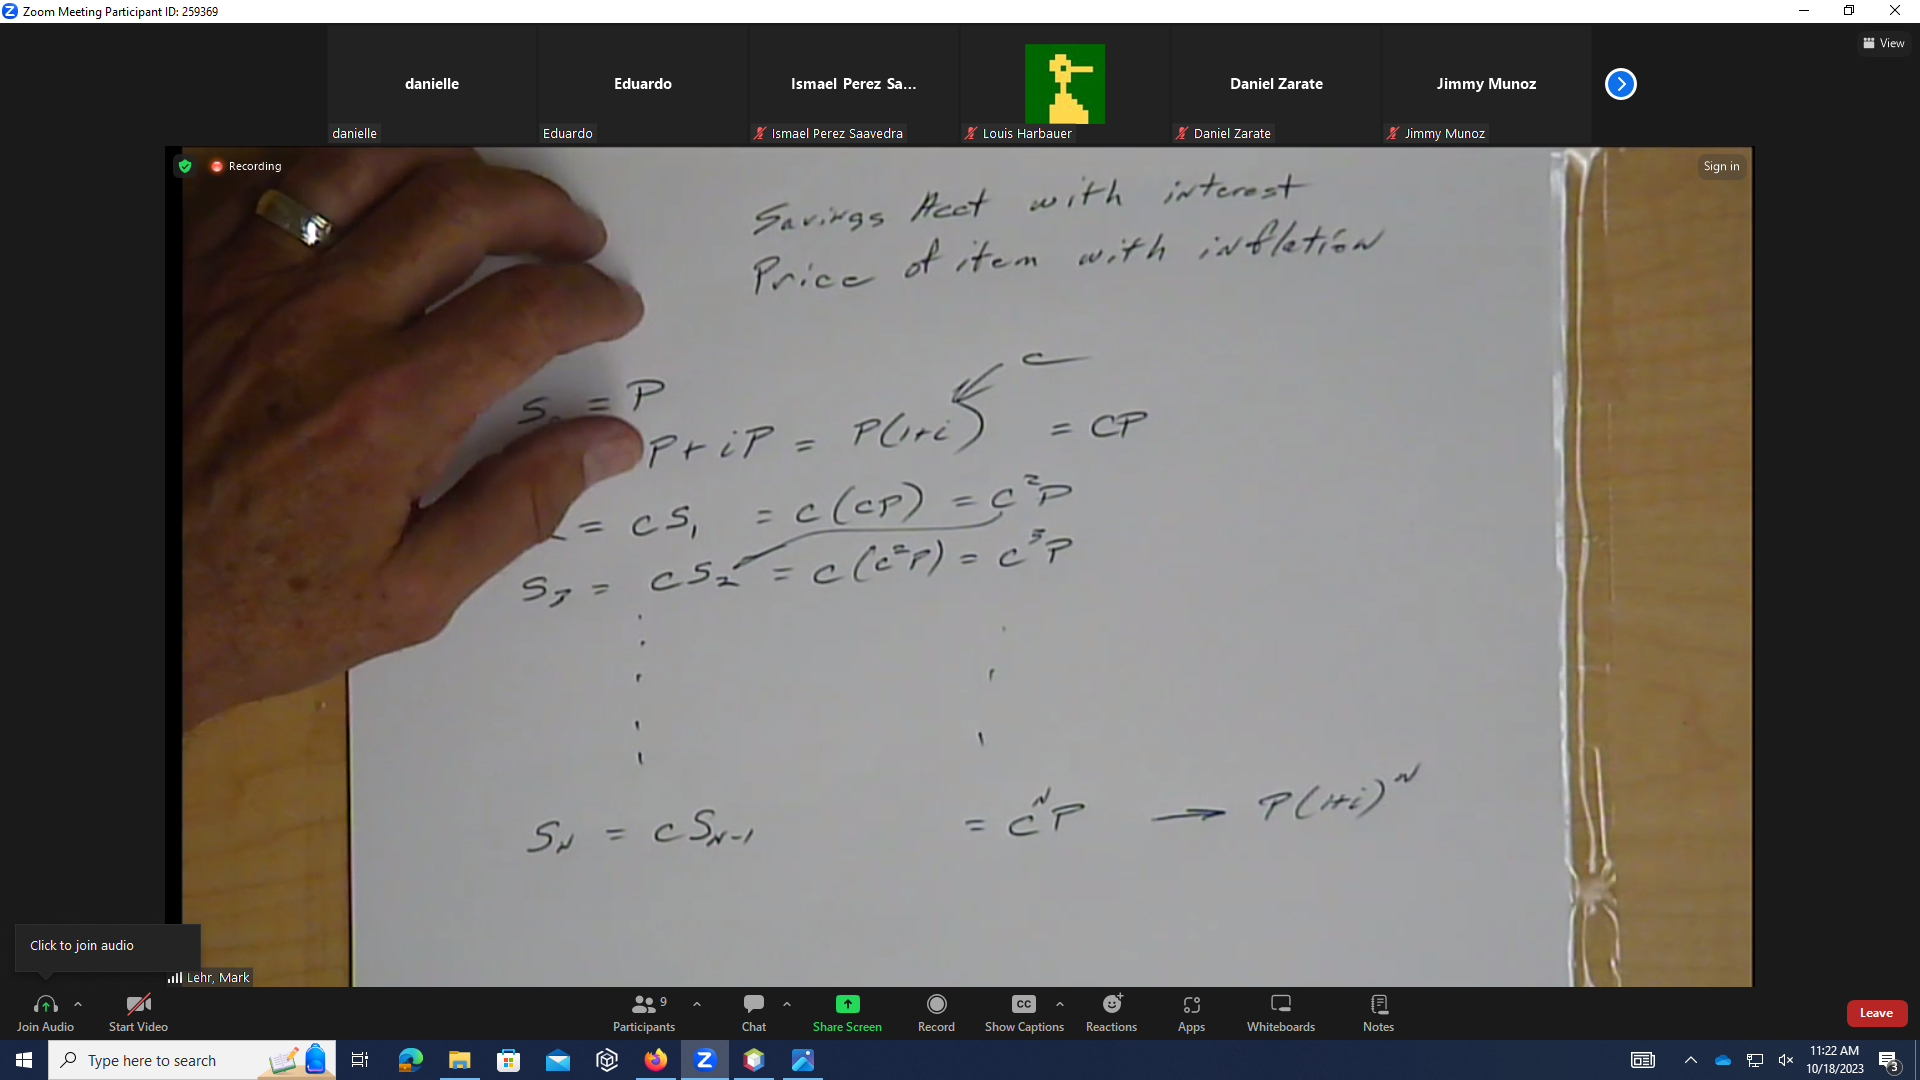 Zoom Meeting Participant ID: 259369
View
danielle
Eduardo
Ismael Perez Sa...
Daniel Zarate
Jimmy Munoz
danielle
Eduardo
Ismael Perez Saavedra
Louis Harbauer
Daniel Zarate
Jimmy Munoz
Recording
Sign in
Savings Acct with interest
Price of item with inflation
c
S = P
P + iP = P(1+i) = CP
= cS₁ = c(cP) = c²P
S₃ = cS₂ = c(c²P) = c³P
S_N = cS_N-1 = c^N P → P(1+i)^N
Click to join audio
Lehr, Mark
Join Audio
Start Video
Participants
9
Chat
Share Screen
CC
Record
Show Captions
Reactions
Apps
Whiteboards
Notes
Leave
Type here to search
11:22 AM
10/18/2023
3